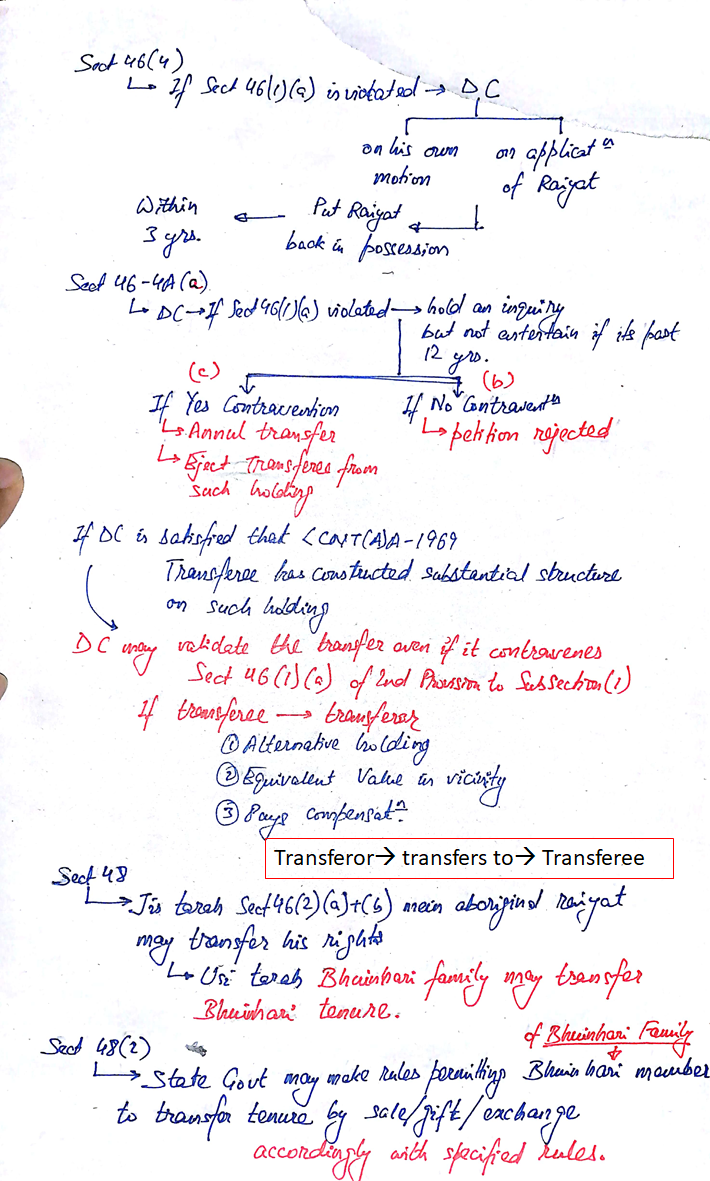 Sect 46(4)
↳ If Sect 46(1)(a) is violated → DC
on his own motion
on applicatⁿ of Raiyat
Within 3 yrs. ← Put Raiyat back in possession
Sect 46-4A(a)
↳ DC → If Sect 46(1)(a) violated → hold an inquiry
but not entertain if its past
12 yrs.
(c) (b)
If Yes Contravention
↳ Annul transfer
↳ Eject Transferee from
such holding
If No Contraventⁿ
↳ petition rejected
If DC is satisfied that < CNT(A)A-1969
Transferee has constructed substantial structure
on such holding
DC may validate the transfer even if it contravenes
Sect 46(1)(a) of 2nd Provision to Subsection(1)
If transferee → transferor
① Alternative holding
② Equivalent Value in vicinity
③ Pays compensatⁿ.
Transferor→ transfers to→ Transferee
Sect 48
↳ Jis tarah Sect 46(2)(a)+(b) mein aboriginal raiyat
may transfer his rights
↳ Usi tarah Bhuinhari family may transfer
Bhuinhari tenure.
of Bhuinhari Family
Sect 48(2)
↳ State Govt may make rules permitting Bhuinhari member
to transfer tenure by sale/gift/exchange
accordingly with specified rules.